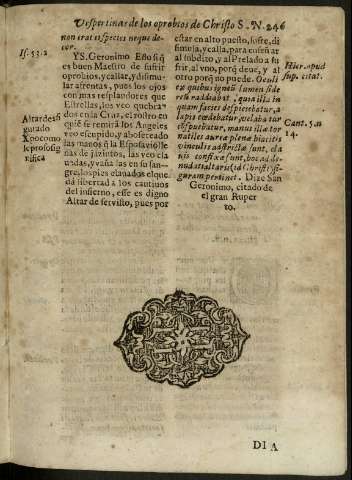 Vespertinas de los oprobios de Christo S. N. 246
non erat ei species neque de-
cor.
Is. 53. 2
YS. Geronimo Esto si q̃
es buen Maestro de sufrir
oprobios, y callar, y disimu-
lar afrentas, pues los ojos
con mas resplandores que
Estrellas, los veo quebra-
dos en la Cruz, el rostro en
quiẽ se remirã los Angeles
veo escupido, y abofeteado
las manos q̃ la Esposa viò lle
nas de jazintos, las veo cla
uadas, y vñas las en san-
gre, los pies clauados el que
dá libertad à los cautiuos
del infierno, esse es digno
Altar de seruirlo, pues por
Altar des
gurado
Xpo como
lo profosig
nifica
estar en alto puesto, sufre, di
simula, y calla, para enseñar
al subdito, y al Prelado a su
frir, al vno, porq̃ deue, y al
otro porq̃ no puede. Oculi
ex quibus igneũ lumen side
reũ radiabat, quia illa in
quam facies despiciebatur, a
lapis cædebatur, velaba tur
conspuebatur, manus illæ tor
natiles aureæ plenæ hiacintis
vinculis adstrictæ sunt, cla
nis confixæ sunt, hoc ad de-
nudati altaris (id Christi) fi-
guram pertinet. Dize San
Geronimo, citado de
el gran Ruper
to.
Hier. apud
sup. citat.
Cant. 5. n
14.
DIA